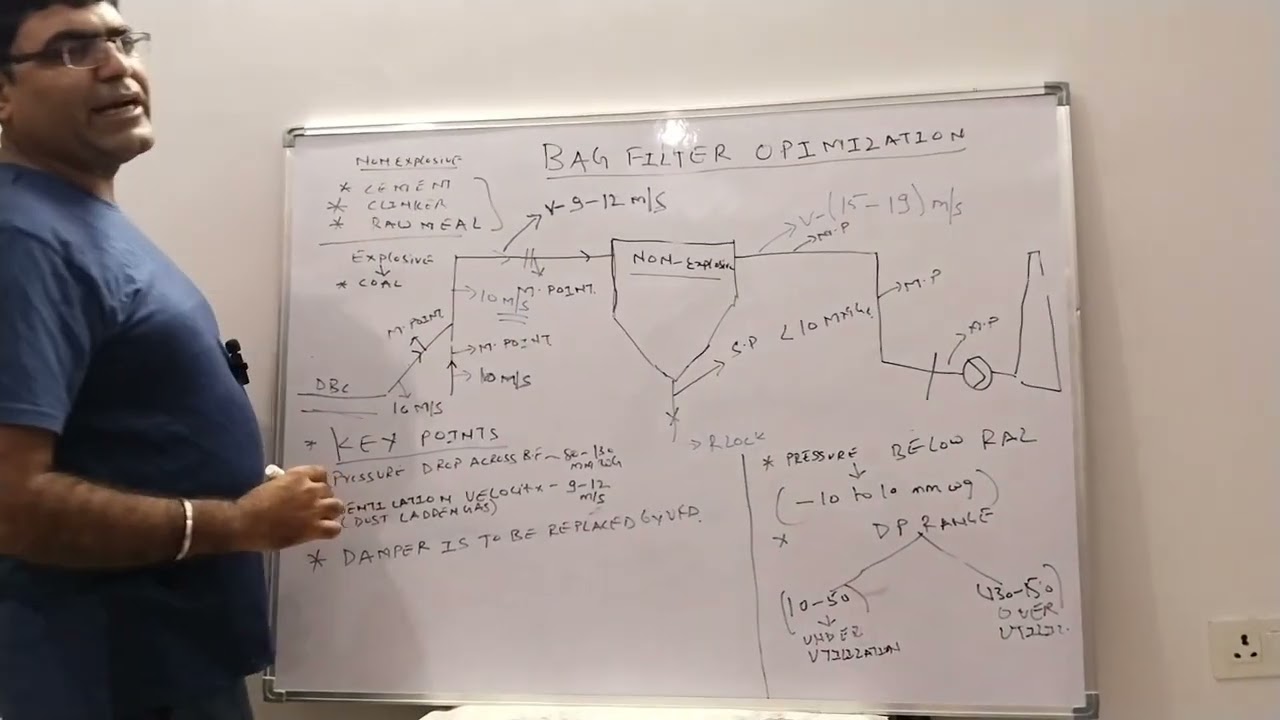 BAG FILTER OPIMIZATION
NON EXPLOSIVE
* CEMENT
* CLINKER
* RAW MEAL
EXPLOSIVE
* COAL
V-9-12 M/S
V-(15-19) M/S
M.P
NON-Explosive
M.POINT
10 M/S
M.POINT.
M.P
M.POINT
S.P < 10 MM
M.P
DBC
10 M/S
10 M/S
R LOCK
* KEY POINTS
PRESSURE DROP ACROSS BF - 80-130
ENTILATION VELOCITY - 9-12
M/S
(DUST LADDEN GAS)
* DAMPER IS TO BE REPLACED By VFD.
* PRESSURE BELOW RAL
(-10 to 10 mm wg)
* DP RANGE
(10-50)
130-150)
UNDER
UTILIZATION
OVER
UTILIZ.